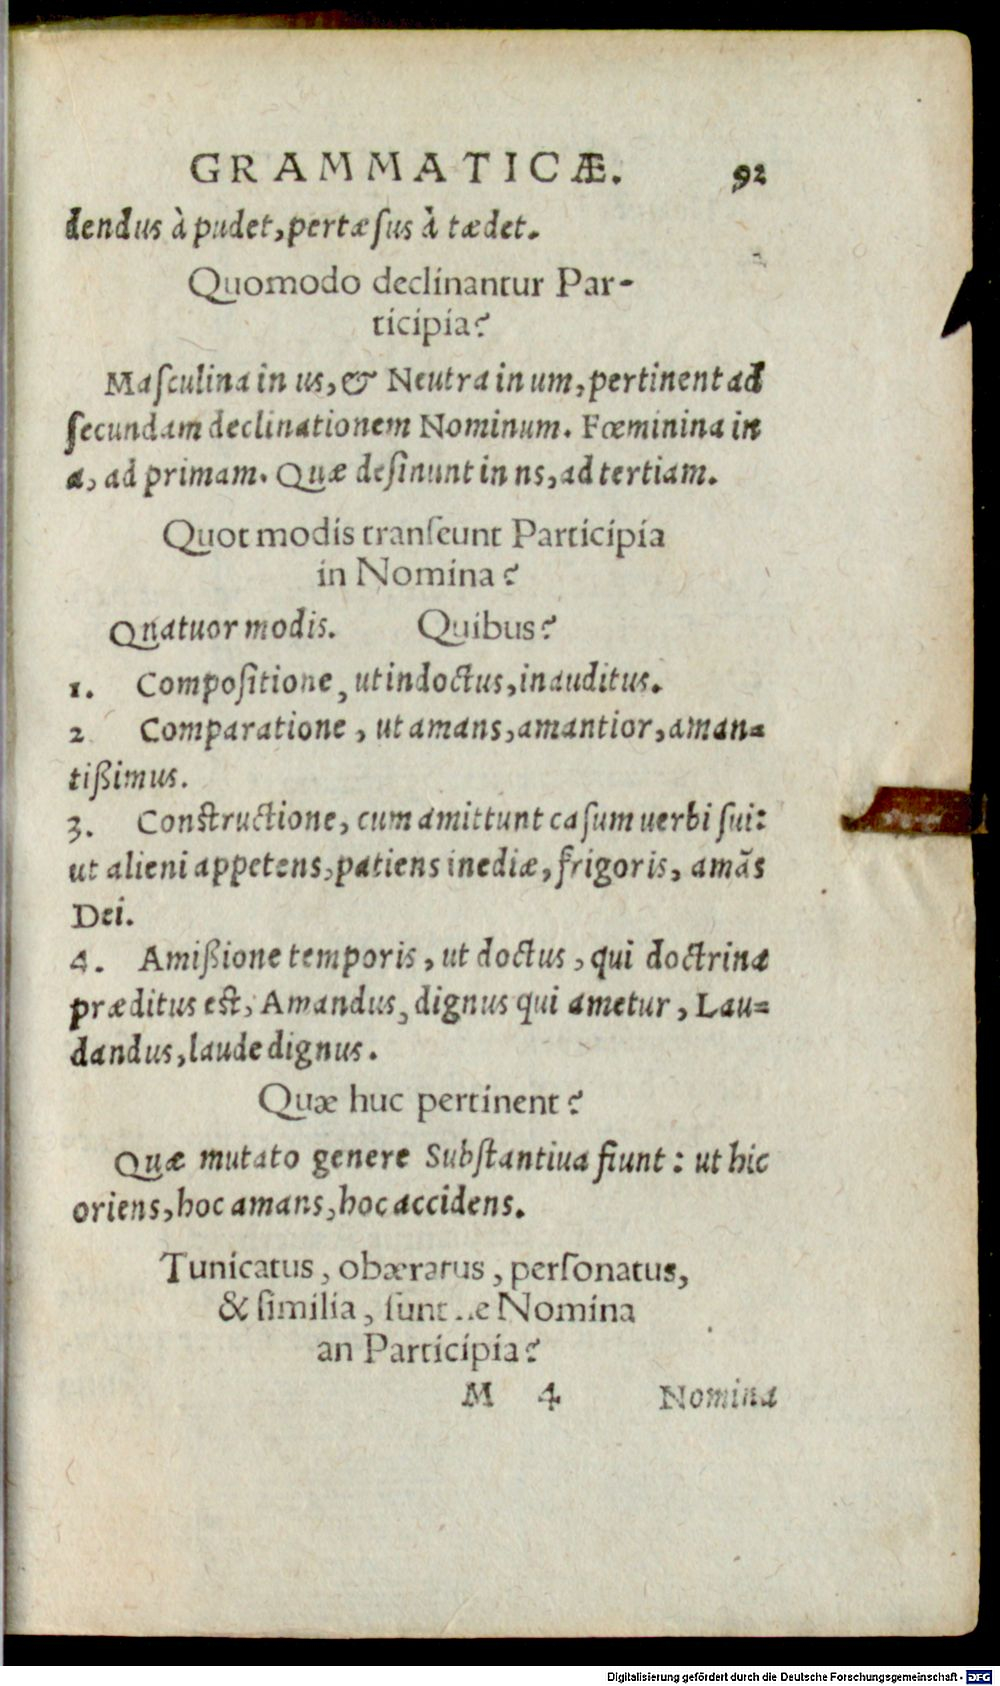 GRAMMATICÆ. 92
dendus à pudet, pertæsus à tædet.
Quomodo declinantur Par-
ticipia?
Masculina in us, & Neutra in um, pertinent ad
secundam declinationem Nominum. Fœminina in
a, ad primam. Quæ desinunt in ns, ad tertiam.
Quot modis transeunt Participia
in Nomina?
Qnatuor modis. Quibus?
1. Compositione, ut indoctus, inauditus.
2 Comparatione, ut amans, amantior, aman=
tißimus.
3. Constructione, cum amittunt casum uerbi sui:
ut alieni appetens, patiens inediæ, frigoris, amãs
Dei.
4. Amißione temporis, ut doctus, qui doctrina
præditus est, Amandus, dignus qui ametur, Lau=
dandus, laude dignus.
Quæ huc pertinent?
Quæ mutato genere Substantiua fiunt: ut hic
oriens, hoc amans, hoc accidens.
Tunicatus, obæratus, personatus,
& similia, sunt ne Nomina
an Participia?
M 4 Nomina
Digitalisierung gefördert durch die Deutsche Forschungsgemeinschaft - DFG